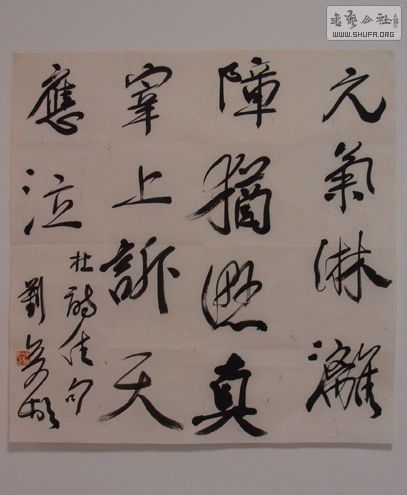 元氣淋漓
障猶濕真
宰上訴天
應泣
杜詩佳句
劉
書藝公社
WWW.SHUFA.ORG